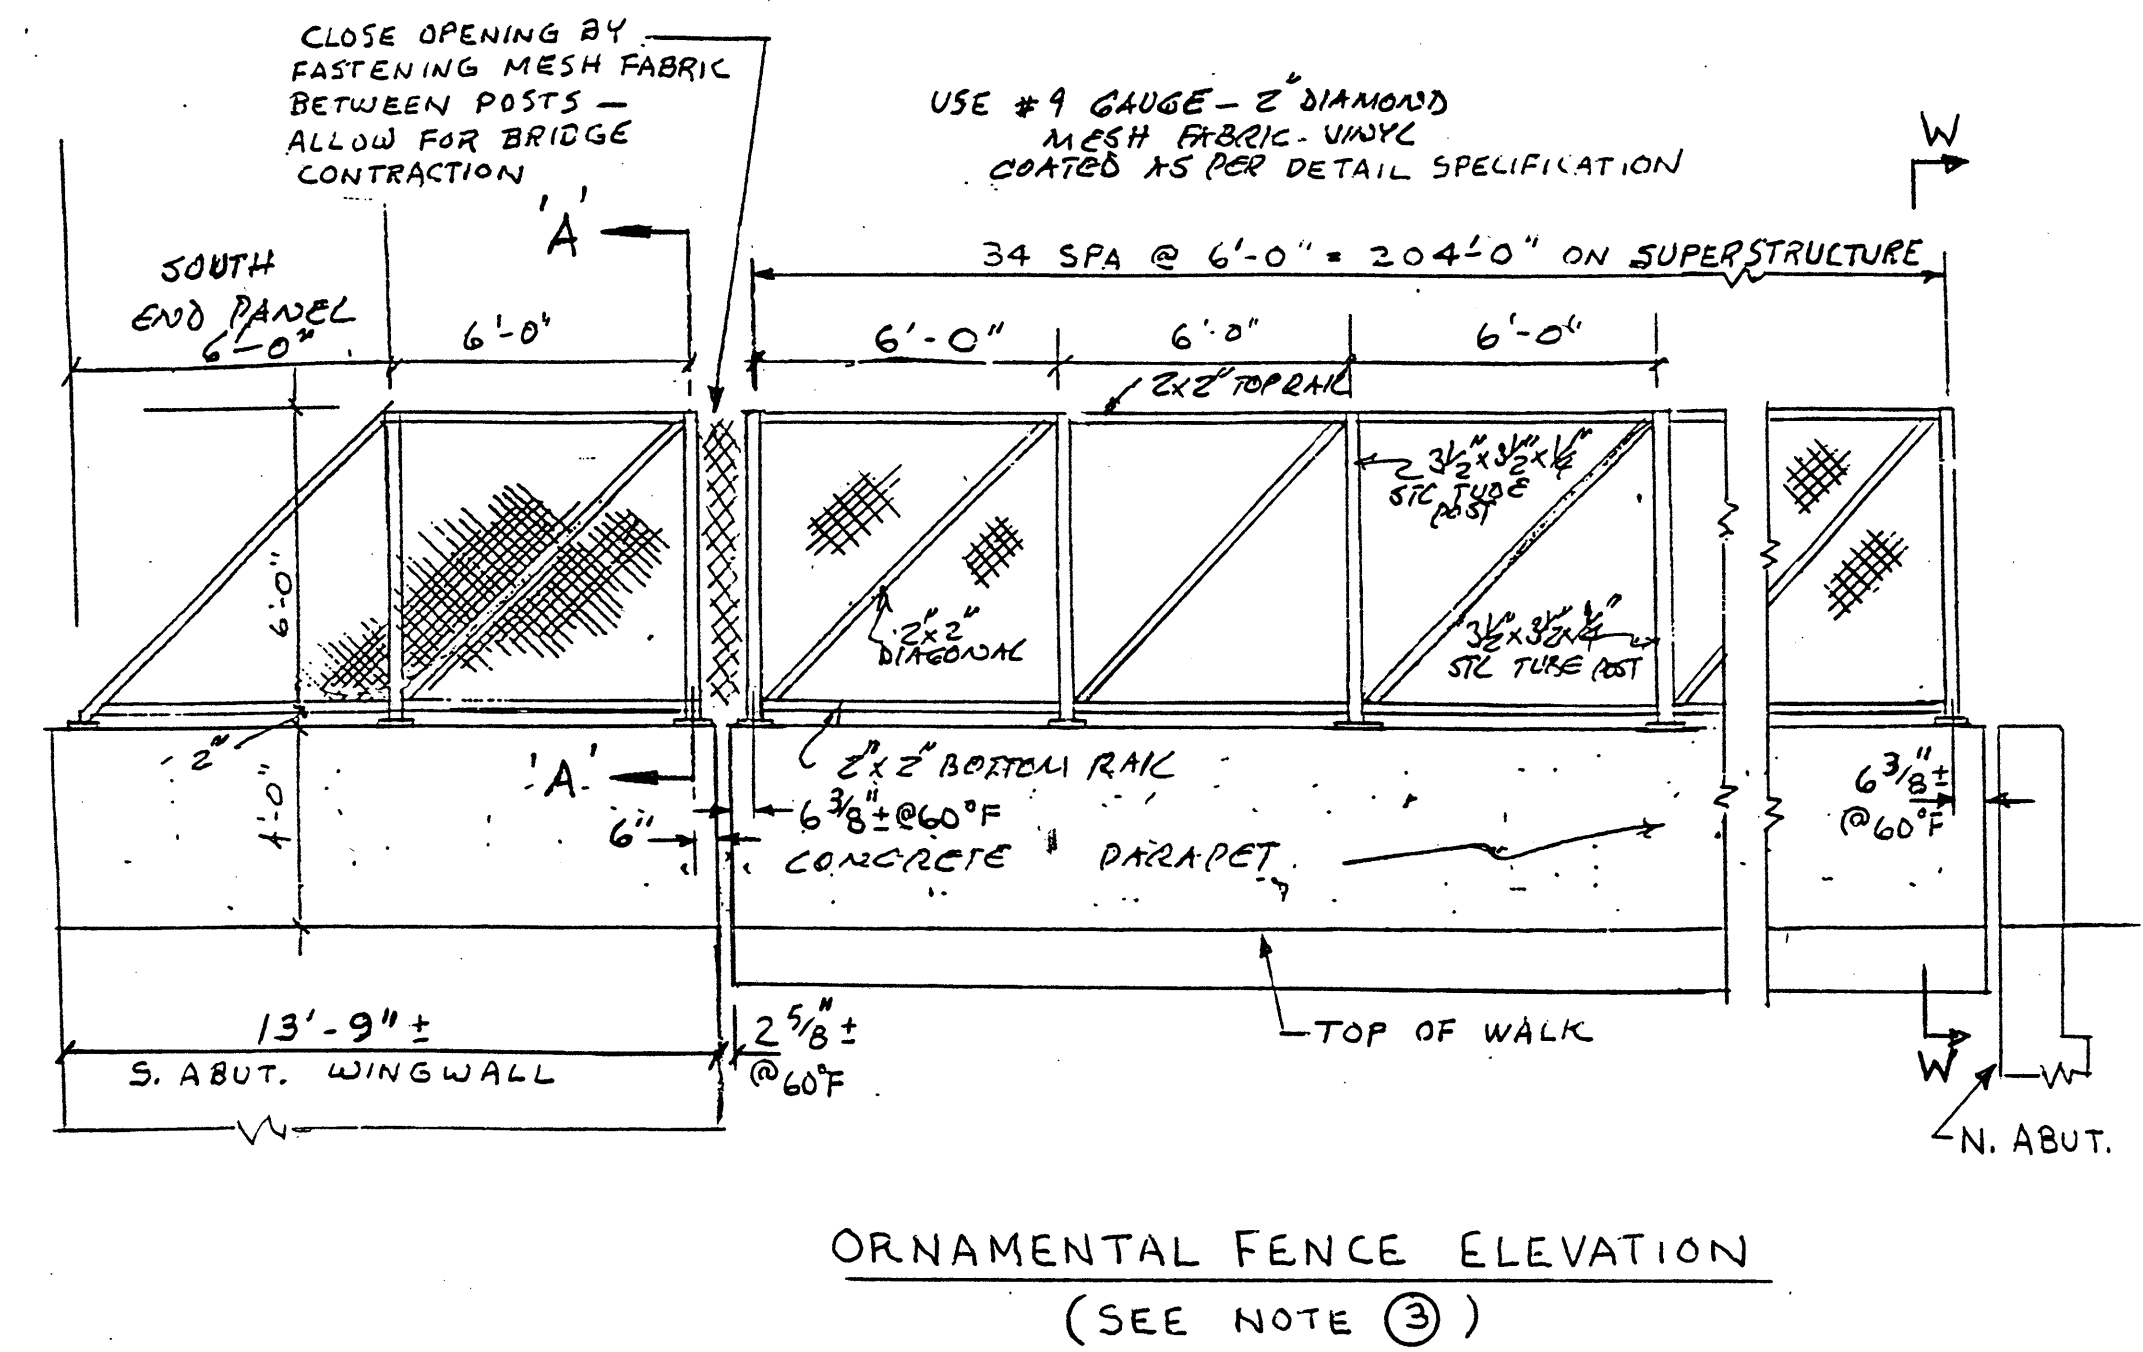 CLOSE OPENING BY
FASTENING MESH FABRIC
BETWEEN POSTS —
ALLOW FOR BRIDGE
CONTRACTION
USE #9 GAUGE - 2" DIAMOND
MESH FABRIC - VINYL
COATED AS PER DETAIL SPECIFICATION
W
'A'
34 SPA @ 6'-0" = 204'-0" ON SUPERSTRUCTURE
SOUTH
END PANEL
6'-0"
6'-0"
6'-0"
6'-0"
6'-0"
2x2" TOP RAIL
3½"x3½"x¼"
STL TUBE
POST
6'-0"
2"x2"
DIAGONAL
3½"x3½x¼"
STL TUBE POST
2"
4'-0"
'A'
2"x2" BOTTOM RAIL
6 3/8"± @60°F
6"
CONCRETE PARAPET
6 3/8"±
@60°F
13'-9"±
S. ABUT. WINGWALL
2 5/8"±
@60°F
TOP OF WALK
W
N. ABUT.
ORNAMENTAL FENCE ELEVATION
(SEE NOTE 3)